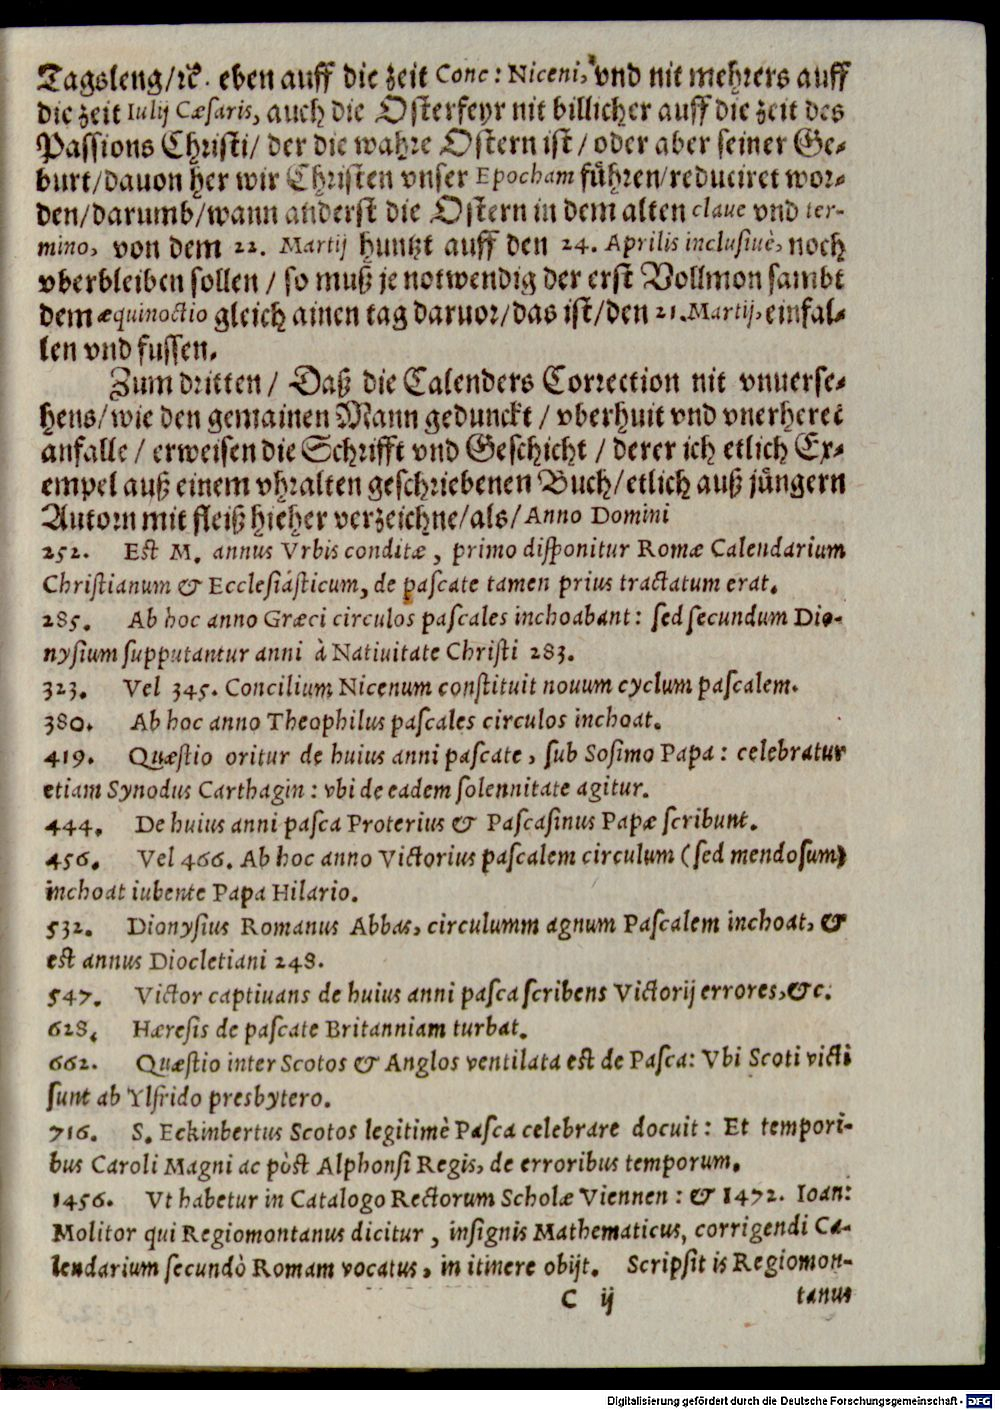 Tagsleng/ꝛc̄. eben auff die zeit Conc: Niceni, vnd nit mehrers auff
die zeit Iulij Cæſaris, auch die Oſterfeyr nit billicher auff die zeit des
Paſſions Chriſti/ der die wahre Oſtern iſt/ oder aber ſeiner Ge-
burt/dauon her wir Chriſten vnſer Epocham fuͤhren/reduciret wor-
den/darumb/wann anderſt die Oſtern in dem alten claue vnd ter-
mino, von dem 22. Martij huntzt auff den 24. Aprilis incluſiuè, noch
vberbleiben ſollen / ſo muß je notwendig der erſt Vollmon ſambt
dem æquinoctio gleich ainen tag daruor/das iſt/den 21. Martij, einfal-
len vnd fuſſen.
Zum dritten / Daß die Calenders Correction nit vnuerſe-
hens/wie den gemainen Mann gedunckt / vberhuit vnd vnerheret
anfalle / erweiſen die Schrifft vnd Geſchicht / derer ich etlich Ex-
empel auß einem vhralten geſchriebenen Buch/etlich auß juͤngern
Autorn mit fleiß hieher verzeichne/als/ Anno Domini
252. Eſt M. annus Vrbis conditæ, primo diſponitur Romæ Calendarium
Chriſtianum & Eccleſiáſticum, de paſcate tamen prius tractatum erat.
285. Ab hoc anno Græci circulos paſcales inchoabant: ſed ſecundum Dio-
nyſium ſupputantur anni à Natiuitate Chriſti 283.
323. Vel 345. Concilium Nicenum conſtituit nouum cyclum paſcalem.
380. Ab hoc anno Theophilus paſcales circulos inchoat.
419. Quæſtio oritur de huius anni paſcate, ſub Soſimo Papa: celebratur
etiam Synodus Carthagin: vbi de eadem ſolennitate agitur.
444. De huius anni paſca Proterius & Paſcaſinus Papæ ſcribunt.
456. Vel 466. Ab hoc anno Victorius paſcalem circulum (ſed mendoſum)
inchoat iubente Papa Hilario.
532. Dionyſius Romanus Abbas, circulumm agnum Paſcalem inchoat, &
eſt annus Diocletiani 248.
547. Victor captiuans de huius anni paſca ſcribens Victorij errores, &c.
628. Hæreſis de paſcate Britanniam turbat.
662. Quæſtio inter Scotos & Anglos ventilata eſt de Paſca: Vbi Scoti victi
ſunt ab Ylfrido presbytero.
716. S. Eckinbertus Scotos legitimè Paſca celebrare docuit: Et tempori-
bus Caroli Magni ac pòſt Alphonſi Regis, de erroribus temporum.
1456. Vt habetur in Catalogo Rectorum Scholæ Viennen: & 1472. Ioan:
Molitor qui Regiomontanus dicitur, inſignis Mathematicus, corrigendi Ca-
lendarium ſecundò Romam vocatus, in itinere obijt. Scripſit is Regiomon-
C ij tanus
Digitalisierung gefördert durch die Deutsche Forschungsgemeinschaft - DFG